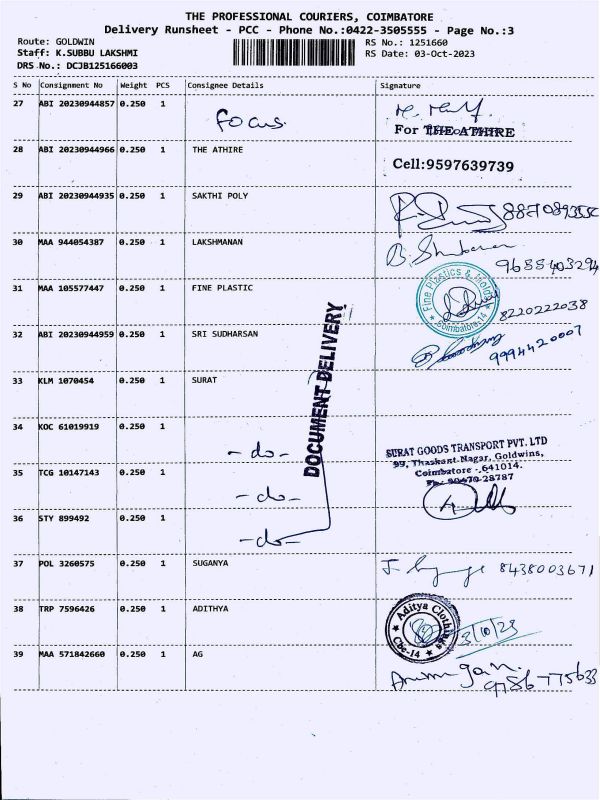 THE PROFESSIONAL COURIERS, COIMBATORE
Delivery Runsheet - PCC - Phone No.:0422-3505555 - Page No.:3
Route: GOLDWIN
RS No.: 1251660
Staff: K.SUBBU LAKSHMI
RS Date: 03-Oct-2023
DRS No.: DCJB125166003
S No Consignment No Weight PCS Consignee Details Signature
27 ABI 20230944857 0.250 1 Focus
For THE ATHIRE
28 ABI 20230944966 0.250 1 THE ATHIRE
Cell:9597639739
29 ABI 20230944935 0.250 1 SAKTHI POLY
30 MAA 944054387 0.250 1 LAKSHMANAN
31 MAA 105577447 0.250 1 FINE PLASTIC
8220222038
32 ABI 20230944959 0.250 1 SRI SUDHARSAN
9994420007
33 KLM 1070454 0.250 1 SURAT
DOCUMENT DELIVERY
34 KOC 61019919 0.250 1 -do-
SURAT GOODS TRANSPORT PVT. LTD
99, Thaskant Nagar, Goldwins,
Coimbatore - 641014.
35 TCG 10147143 0.250 1 -do-
36 STY 899492 0.250 1 -do-
37 POL 3260575 0.250 1 SUGANYA 8438003671
38 TRP 7596426 0.250 1 ADITHYA
Aditya Cloth
Cbe-14
3/10/23
39 MAA 571842660 0.250 1 AG
9786775633